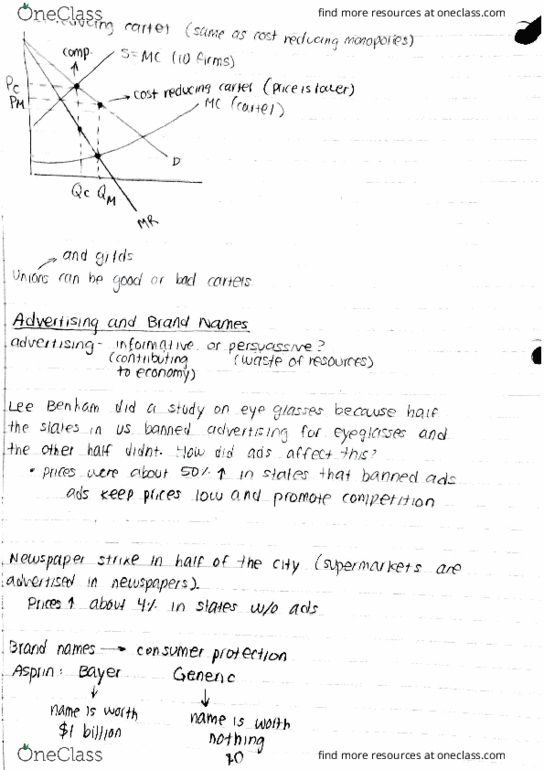 OneClass
find more resources at oneclass.com
reducing cartel (same as cost reducing monopolies)
comp.
S=MC (10 firms)
Pc
PM
cost reducing cartel (price is lower)
MC (cartel)
D
Qc QM
MR
and gilds
Unions can be good or bad cartels
Advertising and Brand Names
advertising - informative or persuassive?
(contributing (waste of resources)
to economy)
Lee Benham did a study on eye glasses because half
the states in us banned advertising for eyeglasses and
the other half didnt. How did ads affect this?
• prices were about 50% ↑ in states that banned ads
ads keep prices low and promote competition
Newspaper strike in half of the city (supermarkets are
advertised in newspapers).
Prices ↑ about 4% in states w/o ads
Brand names → consumer protection
Asprin: Bayer Generic
↓ ↓
name is worth name is worth
$1 billion nothing
OneClass
find more resources at oneclass.com